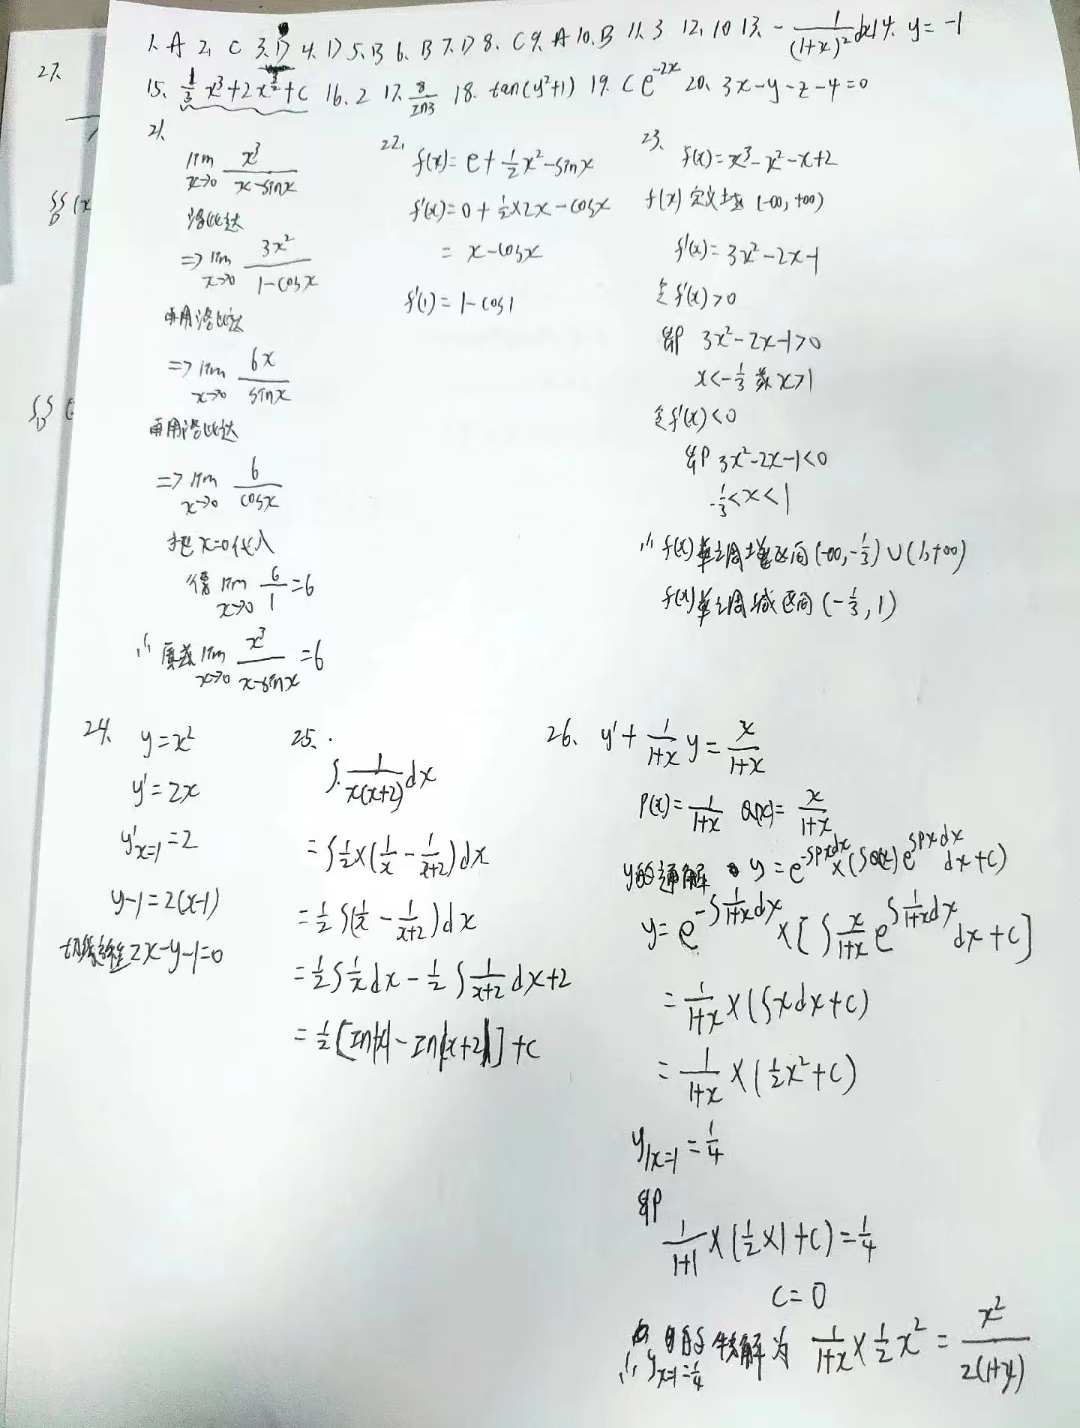 1. A 2. C 3. D 4. D 5. B 6. B 7. D 8. C 9. A 10. B 11. 3 12. 10 13. -1/(1+x)² dx 14. y=-1
15. 1/3 x³+2x^(3/2)+C 16. 2 17. 8/ln3 18. tan(y²+1) 19. Ce^(-2x) 20. 3x-y-z-4=0
21.
lim x→0 x³/(x-sinx)
洛比达
=> lim x→0 3x²/(1-cosx)
再用洛比达
=> lim x→0 6x/sinx
再用洛比达
=> lim x→0 6/cosx
把x=0代入
得 lim x→0 6/1=6
∴ 原式 lim x→0 x³/(x-sinx)=6
22.
f(x)=e+1/2x²-sinx
f'(x)=0+1/2×2x-cosx
= x-cosx
f'(1)=1-cos1
23.
f(x)=x³-x²-x+2
f(x)定义域(-∞,+∞)
f'(x)=3x²-2x-1
令f'(x)>0
即 3x²-2x-1>0
x<-1/3 或 x>1
令f'(x)<0
即 3x²-2x-1<0
-1/3<x<1
∴ f(x)单调增区间(-∞,-1/3)∪(1,+∞)
f(x)单调减区间(-1/3,1)
24.
y=x²
y'=2x
y'x=1=2
y-1=2(x-1)
切线方程2x-y-1=0
25.
∫1/(x(x+2))dx
=∫1/2×(1/x-1/(x+2))dx
=1/2∫(1/x-1/(x+2))dx
=1/2∫1/x dx-1/2∫1/(x+2)dx+2
=1/2[ln|x|-ln|x+2|]+C
26. y'+1/(1+x) y=x/(1+x)
P(x)=1/(1+x) Q(x)=x/(1+x)
y的通解 y=e^(-∫Pxdx)×(∫Q(x)e^(∫Pxdx)dx+C)
y=e^(-∫1/(1+x)dx)×[∫x/(1+x) e^(∫1/(1+x)dx)dx+C]
=1/(1+x)×(∫xdx+C)
=1/(1+x)×(1/2x²+C)
y|x=1=1/4
即
1/(1+1)×(1/2×1+C)=1/4
C=0
∴ yx=1=1/4 的特解为 1/(1+x)×1/2x²=x²/(2(1+x))
27.
∬D (x
∬D (